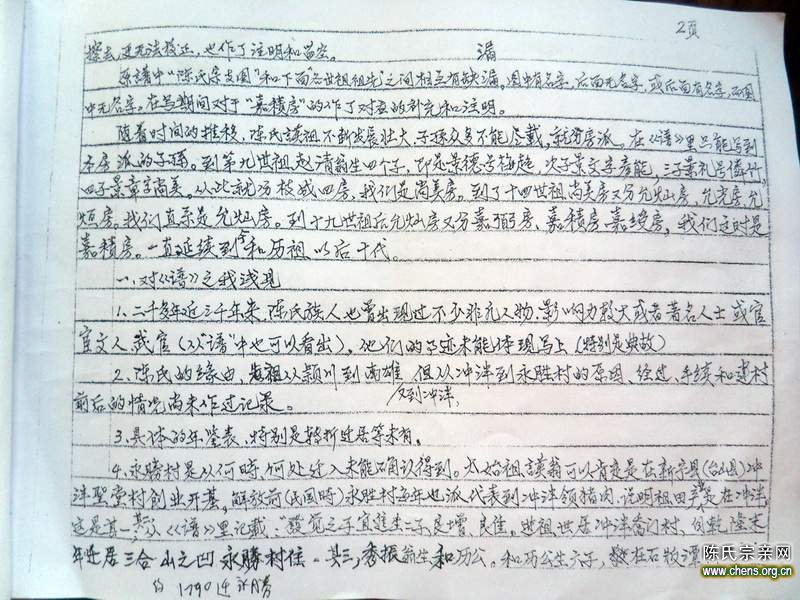 2页
擦去,更无法校正,也作了注明和留空。
漏
原谱中"陈氏宗支图"和下面"各世祖祖先"之间相互有缺漏。图中有名字,后面无名字,或后面有名字,而图
中无名字。在写期间对于"嘉積房"的作了对应的补充和注明。
随着时间的推移,陈氏读祖不断发展壮大,子孫众多不能尽载,就分房派。在《谱》里只能写到
本房派的子孫。到第九世祖 清翁生四个子,即是景德号梅趋,次子景文字彦能,三子景礼号 竹,
四子景章字尚美。从此就分枝成四房,我们是尚美房。到了十四世祖尚美房又分允灿房,允 房,允
烦房。我们直系是允灿房。到十九世祖后允灿房又分嘉 房、嘉積房、嘉 房,我们这时是
嘉積房。一直延续到今和历祖以后十代。
一、对《谱》之我浅见
1、二千多年近三千年来,陈氏族人也曾出现过不少非凡人物,影响力较大或者著名人士或官
宦文人武官(从"谱"中也可以看出),他们的事迹未能体现写上(特别是典故)
2、陈氏的缘由,始祖从颖川到南雄,又到冲泮,但从冲泮到永胜村的原因、经过、手续和建村
前后的情况尚未作过记录。
3、具体的年鉴表,特别是转折迁居等未有。
4、永勝村是从何時,何处迁入未能确认得到。太始祖 翁可以肯定是在新宁县(台山县)冲
泮聖堂村創业开基,解放前(民国時)永胜村每年也派代表到冲泮领猪肉,说明祖田 是在冲泮,
这是其一,其二,从《谱》里记载, 之子宜進生二子,良增、良佳。 祖世居冲泮 村, 隆末
年迁居三合山之凹永勝村住。其三,秀振翁生和历公。和历公生六子, 在石牧潭
约1790迁永勝
陈氏宗亲网
www.chens.org.cn